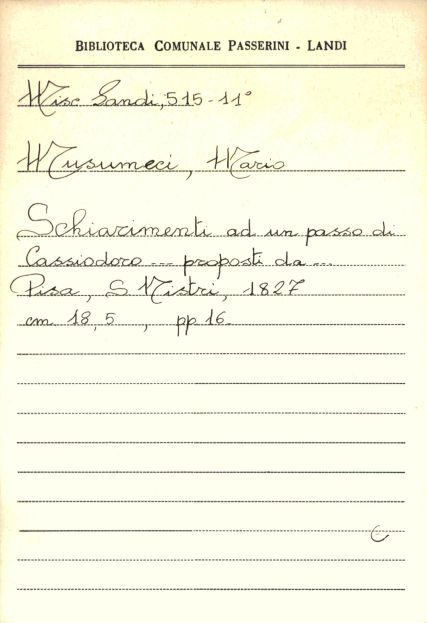 BIBLIOTECA COMUNALE PASSERINI - LANDI
Misc. Landi, 515-11°
Musumeci, Mario
Schiarimenti ad un passo di
Cassiodoro ... proposti da ...
Pisa, S Nistri, 1827
cm. 18,5 , pp 16.
C